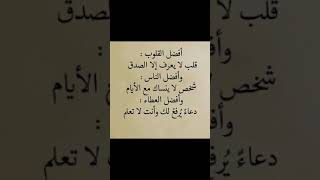 أفضل القلوب :
قلب لا يعرف إلا الصدق
وأفضل الناس :
شخص لا ينساك مع الأيام
وأفضل العطاء :
دعاءً يُرفع لك وأنت لا تعلم